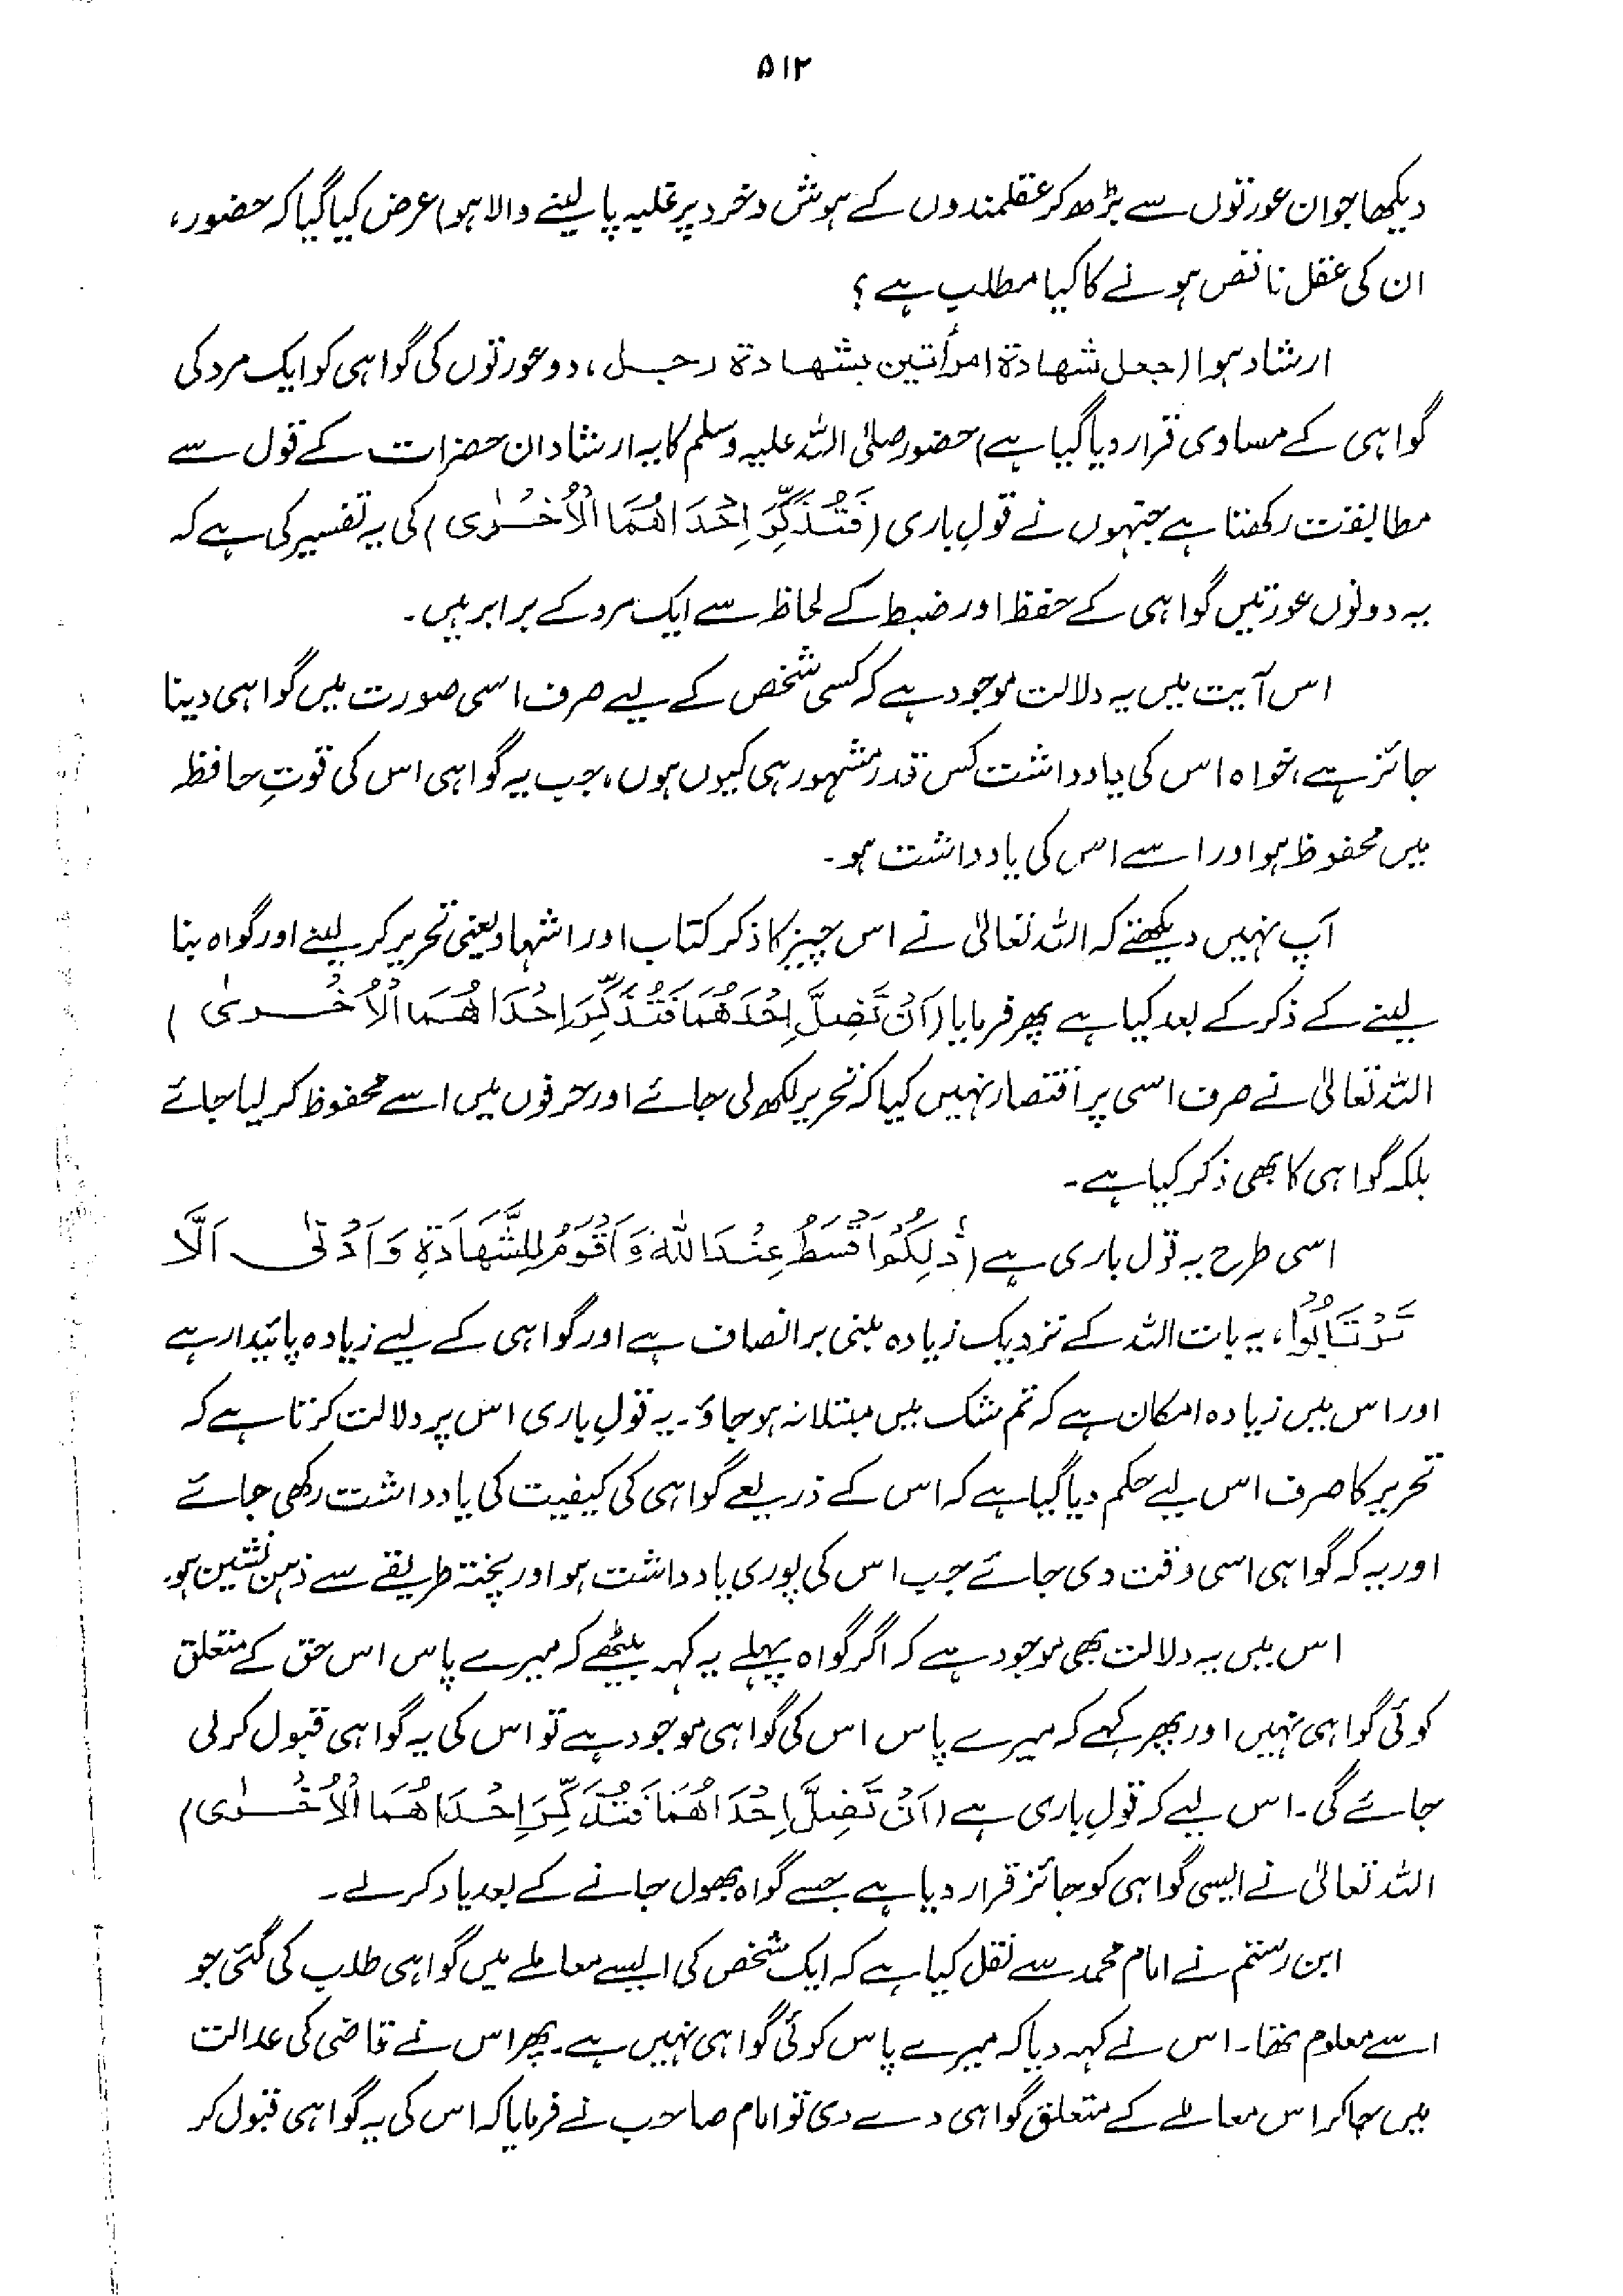 ۵۱۲
دیکھا جو ان عورتوں سے بڑھ کر عقلمندوں کے ہوش و خرد پر غلبہ پا لینے والا ہو، عرض کیا گیا کہ حضور،
ان کی عقل ناقص ہونے کا کیا مطلب ہے؟
ارشاد ہوا (جعل شهادة امرأتین بشهادة رجل، دو عورتوں کی گواہی کو ایک مرد کی
گواہی کے مساوی قرار دیا گیا ہے) حضور صلی اللہ علیہ وسلم کا یہ ارشاد ان حضرات کے قول سے
مطابقت رکھتا ہے جنہوں نے قولِ باری (فَتُذَكِّرَ اِحْدَاهُمَا الْاُخْرٰى) کی یہ تفسیر کی ہے کہ
یہ دونوں عورتیں گواہی کے حفظ اور ضبط کے لحاظ سے ایک مرد کے برابر ہیں۔
اس آیت میں یہ دلالت موجود ہے کہ کسی شخص کے لیے صرف اسی صورت میں گواہی دینا
جائز ہے، خواہ اس کی یادداشت کس قدر مشہور ہی کیوں ہوں، جب یہ گواہی اس کی قوتِ حافظہ
میں محفوظ ہو اور اسے اس کی یادداشت ہو۔
آپ نہیں دیکھتے کہ اللہ تعالیٰ نے اس چیز کا ذکر کتاب اور اشہاد یعنی تحریر کر لینے اور گواہ بنا
لینے کے ذکر کے بعد کیا ہے پھر فرمایا (اَنْ تَضِلَّ اِحْدَهُمَا فَتُذَكِّرَ اِحْدَاهُمَا الْاُخْرىٰ)
اللہ تعالیٰ نے صرف اسی پر اقتصار نہیں کیا کہ تحریر لکھ لی جائے اور حرفوں میں اسے محفوظ کر لیا جائے
بلکہ گواہی کا بھی ذکر کیا ہے۔
اسی طرح یہ قول باری ہے (ذٰلِكُمْ اَقْسَطُ عِنْدَ اللهِ وَاَقْوَمُ لِلشَّهَادَةِ وَاَدْنٰى اَلَّا
تَرْتَابُوْا، یہ بات اللہ کے نزدیک زیادہ مبنی بر انصاف ہے اور گواہی کے لیے زیادہ پائیدار ہے
اور اس میں زیادہ امکان ہے کہ تم شک میں مبتلا نہ ہو جاؤ۔ یہ قولِ باری اس پر دلالت کرتا ہے کہ
تحریر کا صرف اس لیے حکم دیا گیا ہے کہ اس کے ذریعے گواہی کی کیفیت کی یادداشت رکھی جائے
اور یہ کہ گواہی اسی وقت دی جائے جب اس کی پوری یادداشت ہو اور پختہ طریقے سے ذہن نشین ہو۔
اس میں یہ دلالت بھی موجود ہے کہ اگر گواہ پہلے یہ کہہ بیٹھے کہ میرے پاس اس حق کے متعلق
کوئی گواہی نہیں اور پھر کہے کہ میرے پاس اس کی گواہی موجود ہے تو اس کی یہ گواہی قبول کر لی
جائے گی۔ اس لیے کہ قولِ باری ہے (اَنْ تَضِلَّ اِحْدَاهُمَا فَتُذَكِّرَ اِحْدَاهُمَا الْاُخْرٰى)
اللہ تعالیٰ نے ایسی گواہی کو جائز قرار دیا ہے جسے گواہ بھول جانے کے بعد یاد کرلے۔
ابن رستم نے امام محمد سے نقل کیا ہے کہ ایک شخص کی ایسے معاملے میں گواہی طلب کی گئی جو
اسے معلوم تھا۔ اس نے کہہ دیا کہ میرے پاس کوئی گواہی نہیں ہے۔ پھر اس نے قاضی کی عدالت
میں جا کر اس معاملے کے متعلق گواہی دے دی تو امام صاحب نے فرمایا کہ اس کی یہ گواہی قبول کر